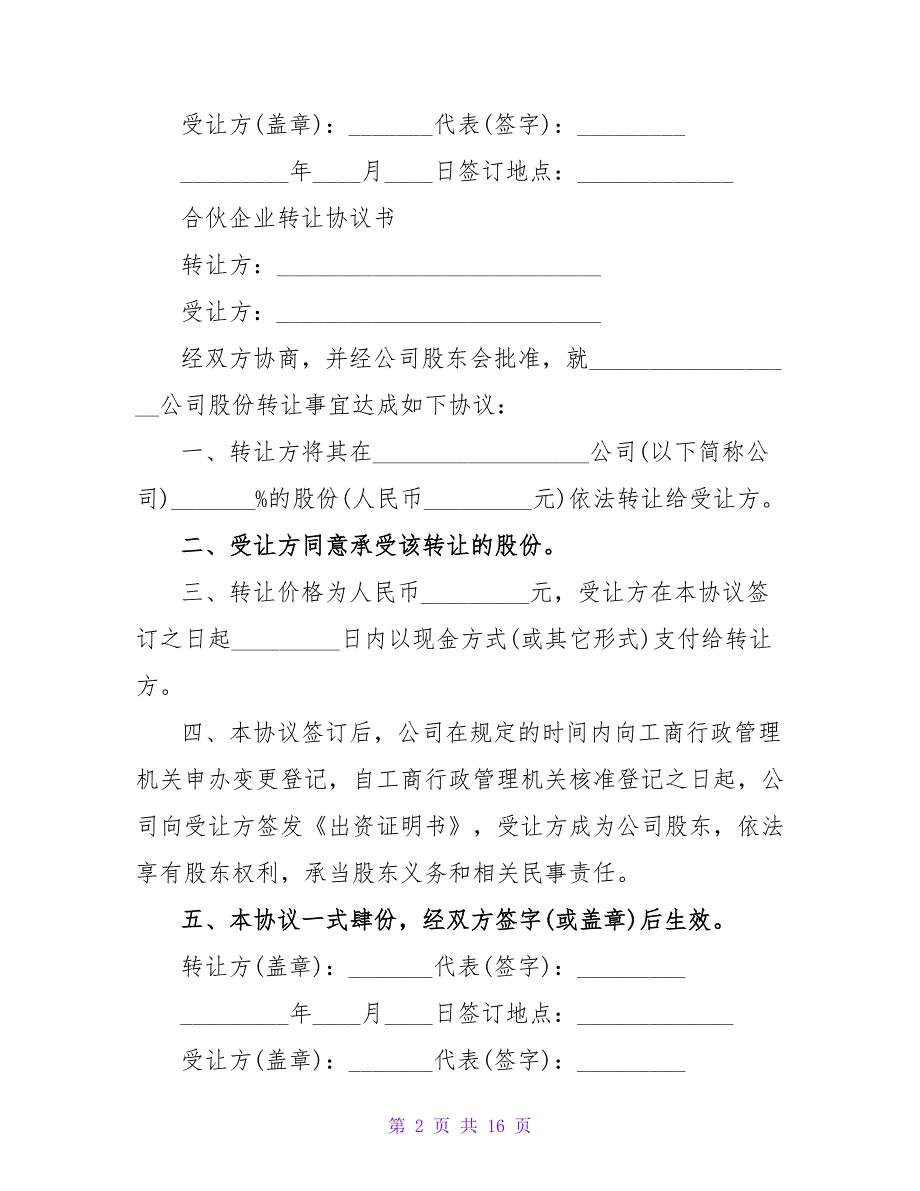 受让方(盖章)：_______代表(签字)：_________
_________年____月____日签订地点：_____________
合伙企业转让协议书
转让方：___________________________
受让方：___________________________
经双方协商，并经公司股东会批准，就________________
__公司股份转让事宜达成如下协议：
一、转让方将其在__________________公司(以下简称公
司)_______%的股份(人民币_________元)依法转让给受让方。
二、受让方同意承受该转让的股份。
三、转让价格为人民币_________元，受让方在本协议签
订之日起_________日内以现金方式(或其它形式)支付给转让
方。
四、本协议签订后，公司在规定的时间内向工商行政管理
机关申办变更登记，自工商行政管理机关核准登记之日起，公
司向受让方签发《出资证明书》，受让方成为公司股东，依法
享有股东权利，承当股东义务和相关民事责任。
五、本协议一式肆份，经双方签字(或盖章)后生效。
转让方(盖章)：_______代表(签字)：_________
_________年____月____日签订地点：_____________
受让方(盖章)：_______代表(签字)：_________
第 2 页 共 16 页